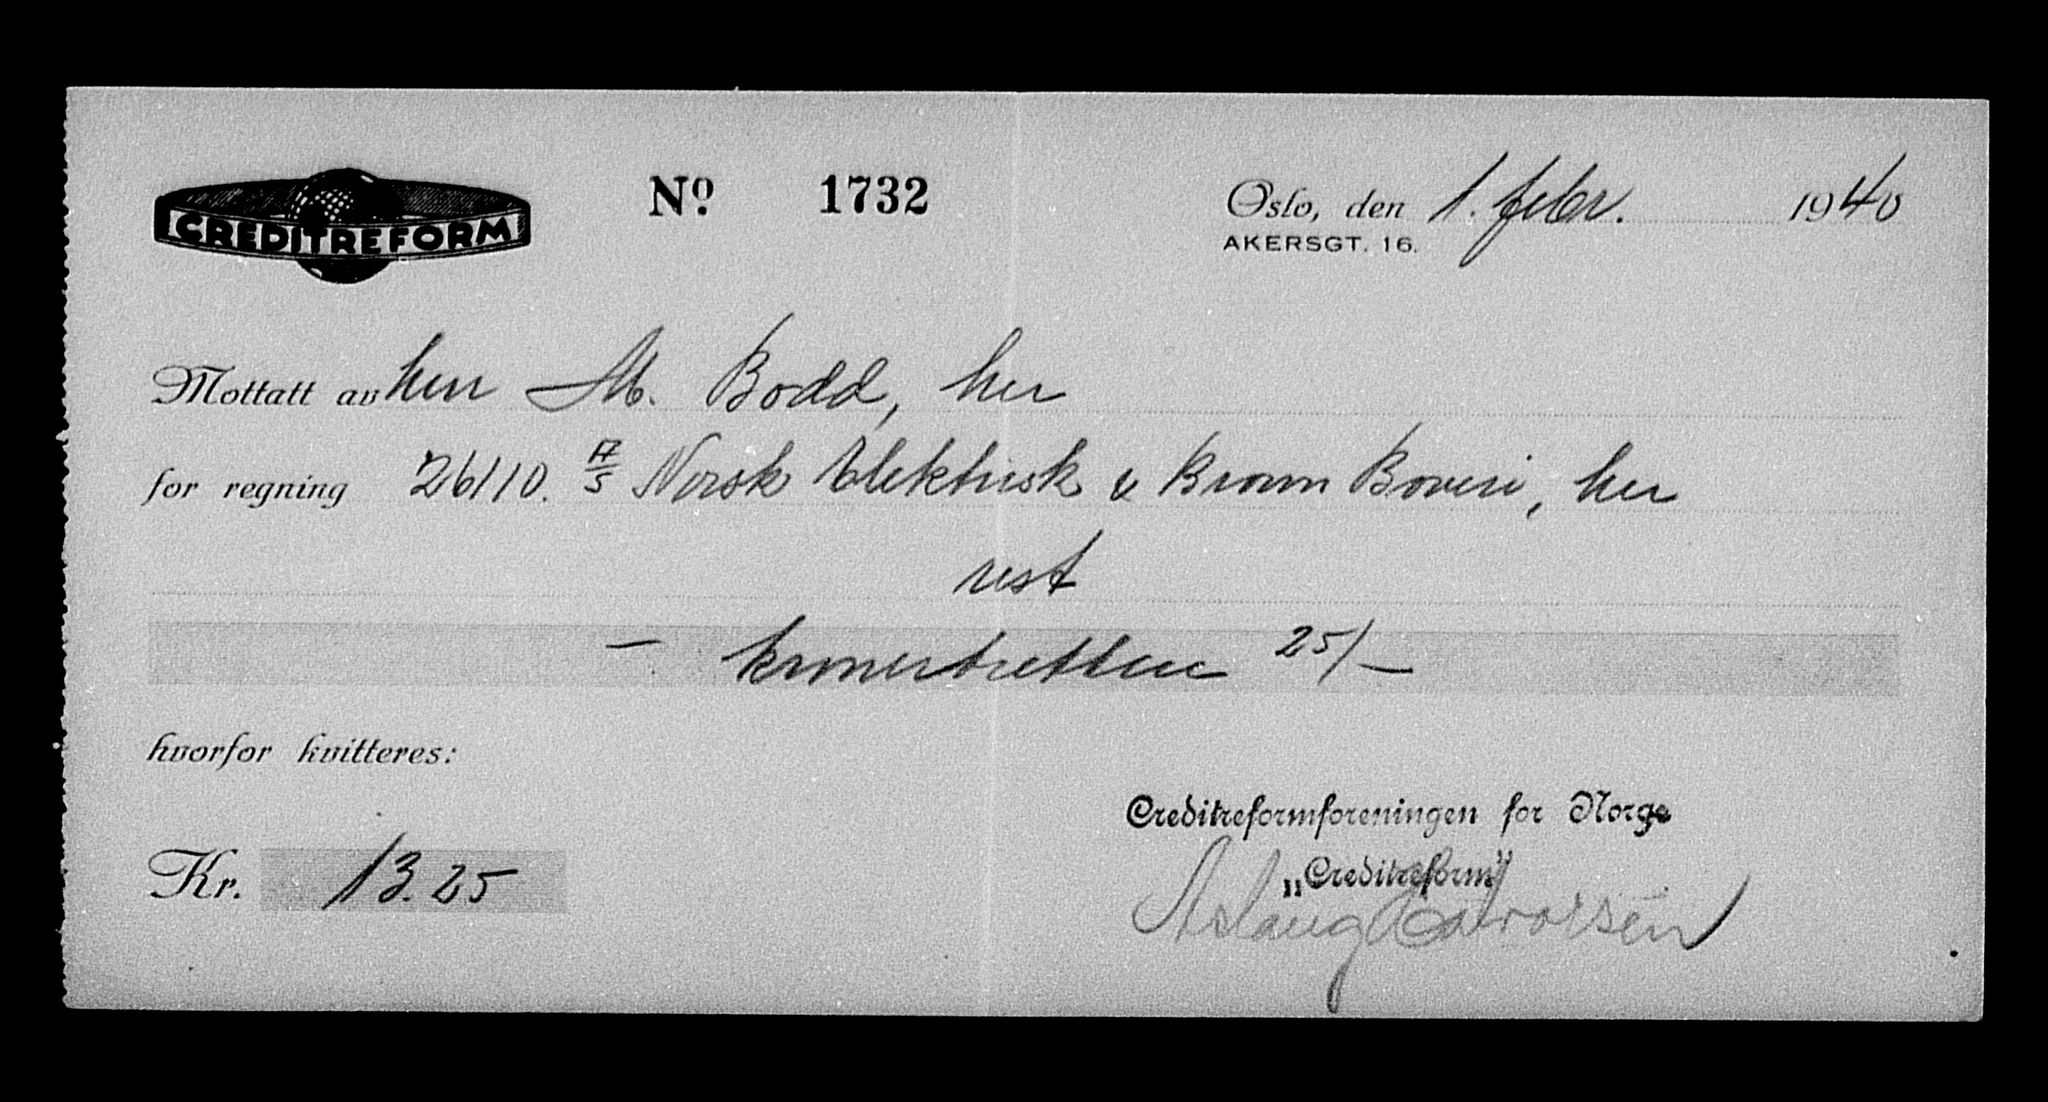 CREDITREFORM
No. 1732
Oslo, den 1. febr. 1940
AKERSGT. 16.
Mottatt av herr M. Bodd, her
for regning 26110. A/S Norsk Elektrisk & Brown Boveri, her
rest
— kronertretten 25/—
hvorfor kvitteres:
Creditreformforeningen for Norge
„Creditreform"
Kr. 13.25
Aslaug Halvorsen